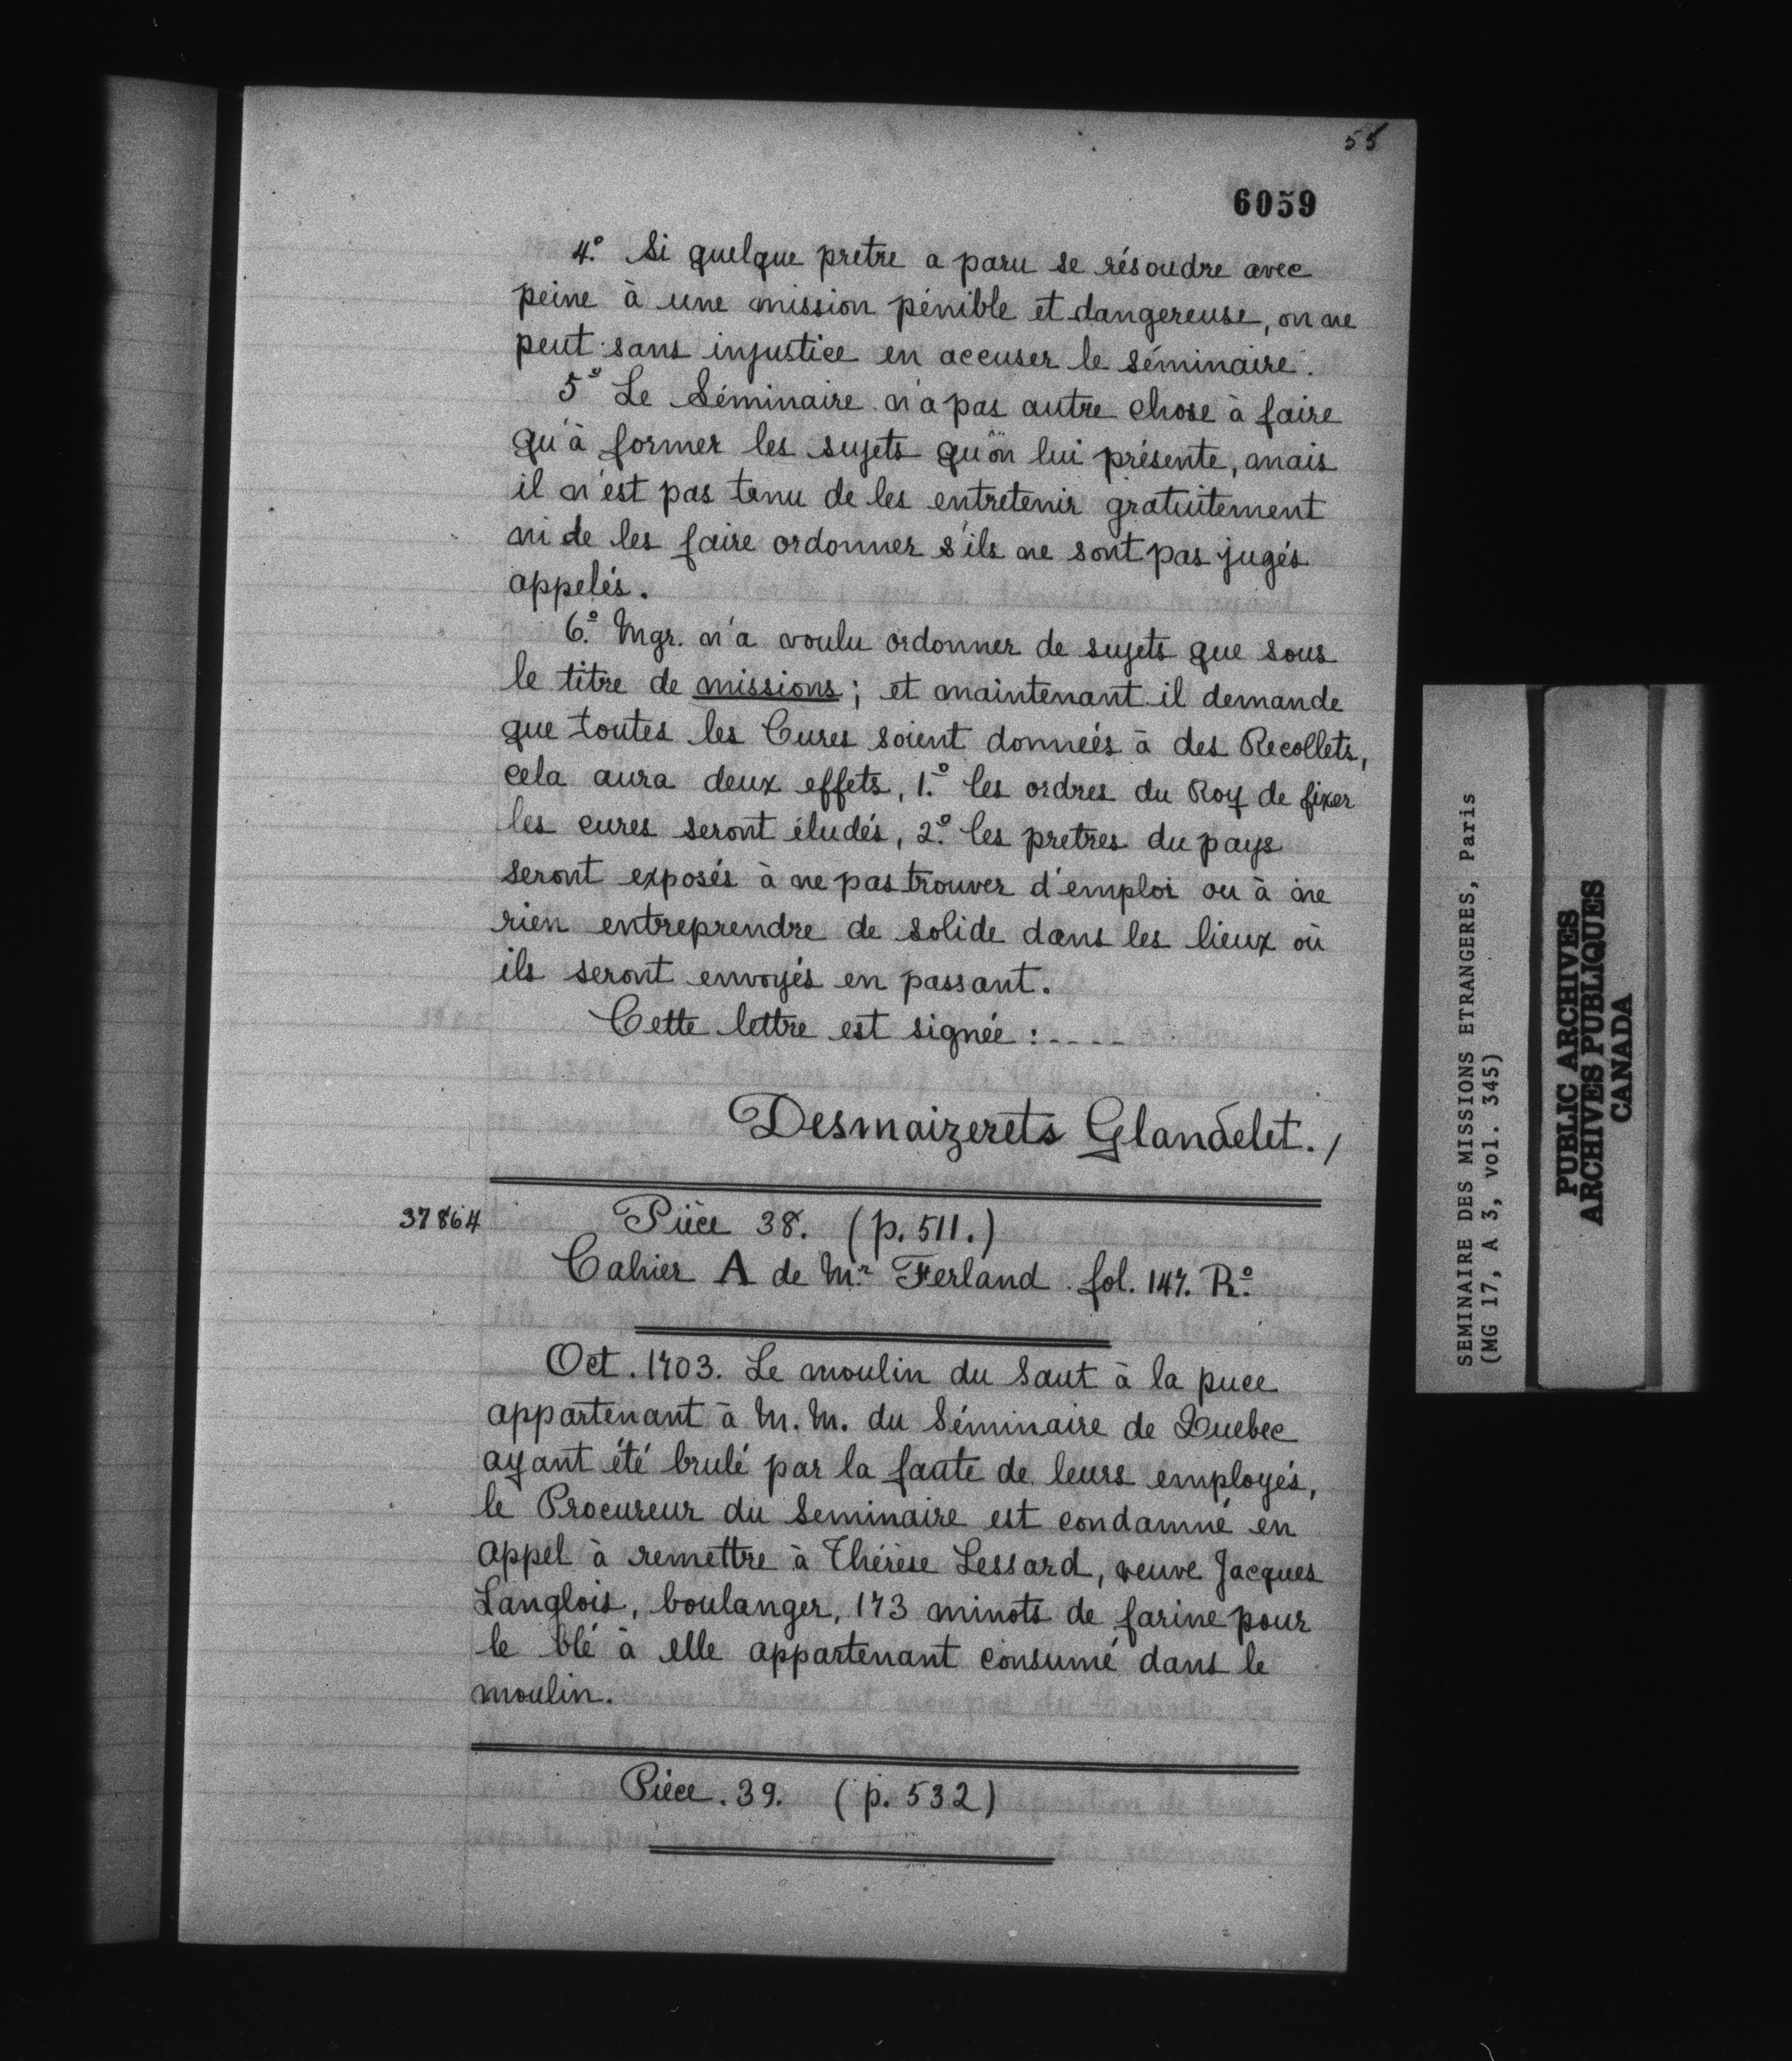 55
6059
4.º Si quelque pretre a paru se résoudre avec
peine à une mission pénible et dangereuse, on ne
peut sans injustice en accuser le séminaire.
5º Le Séminaire n'a pas autre chose à faire
qu'à former les sujets qu'on lui présente, mais
il n'est pas tenu de les entretenir gratuitement
ni de les faire ordonner s'ils ne sont pas jugés
appelés.
6.º Mgr. n'a voulu ordonner de sujets que sous
le titre de missions ; et maintenant il demande
que toutes les Cures soient données à des Recollets,
cela aura deux effets, 1.º les ordres du Roy de fixer
les cures seront éludés, 2.º les pretres du pays
seront exposés à ne pas trouver d'emploi ou à ne
rien entreprendre de solide dans les lieux où
ils seront envoyés en passant.
Cette lettre est signée : - - - -
Desmaizerets Glandelet. /
37864
Pièce 38. (p. 511.)
Cahier A de Mr. Ferland. fol. 147. Rº.
Oct. 1703. Le moulin du Saut à la puce
appartenant à M. M. du Séminaire de Quebec
ayant été brulé par la faute de leurs employés,
le Procureur du Seminaire est condamné en
appel à remettre à Thérèse Lessard, veuve Jacques
Langlois, boulanger, 173 minots de farine pour
le blé à elle appartenant consumé dans le
moulin.
Pièce. 39. (p. 532)
SEMINAIRE DES MISSIONS ETRANGERES, Paris
(MG 17, A 3, vol. 345)
PUBLIC ARCHIVES
ARCHIVES PUBLIQUES
CANADA